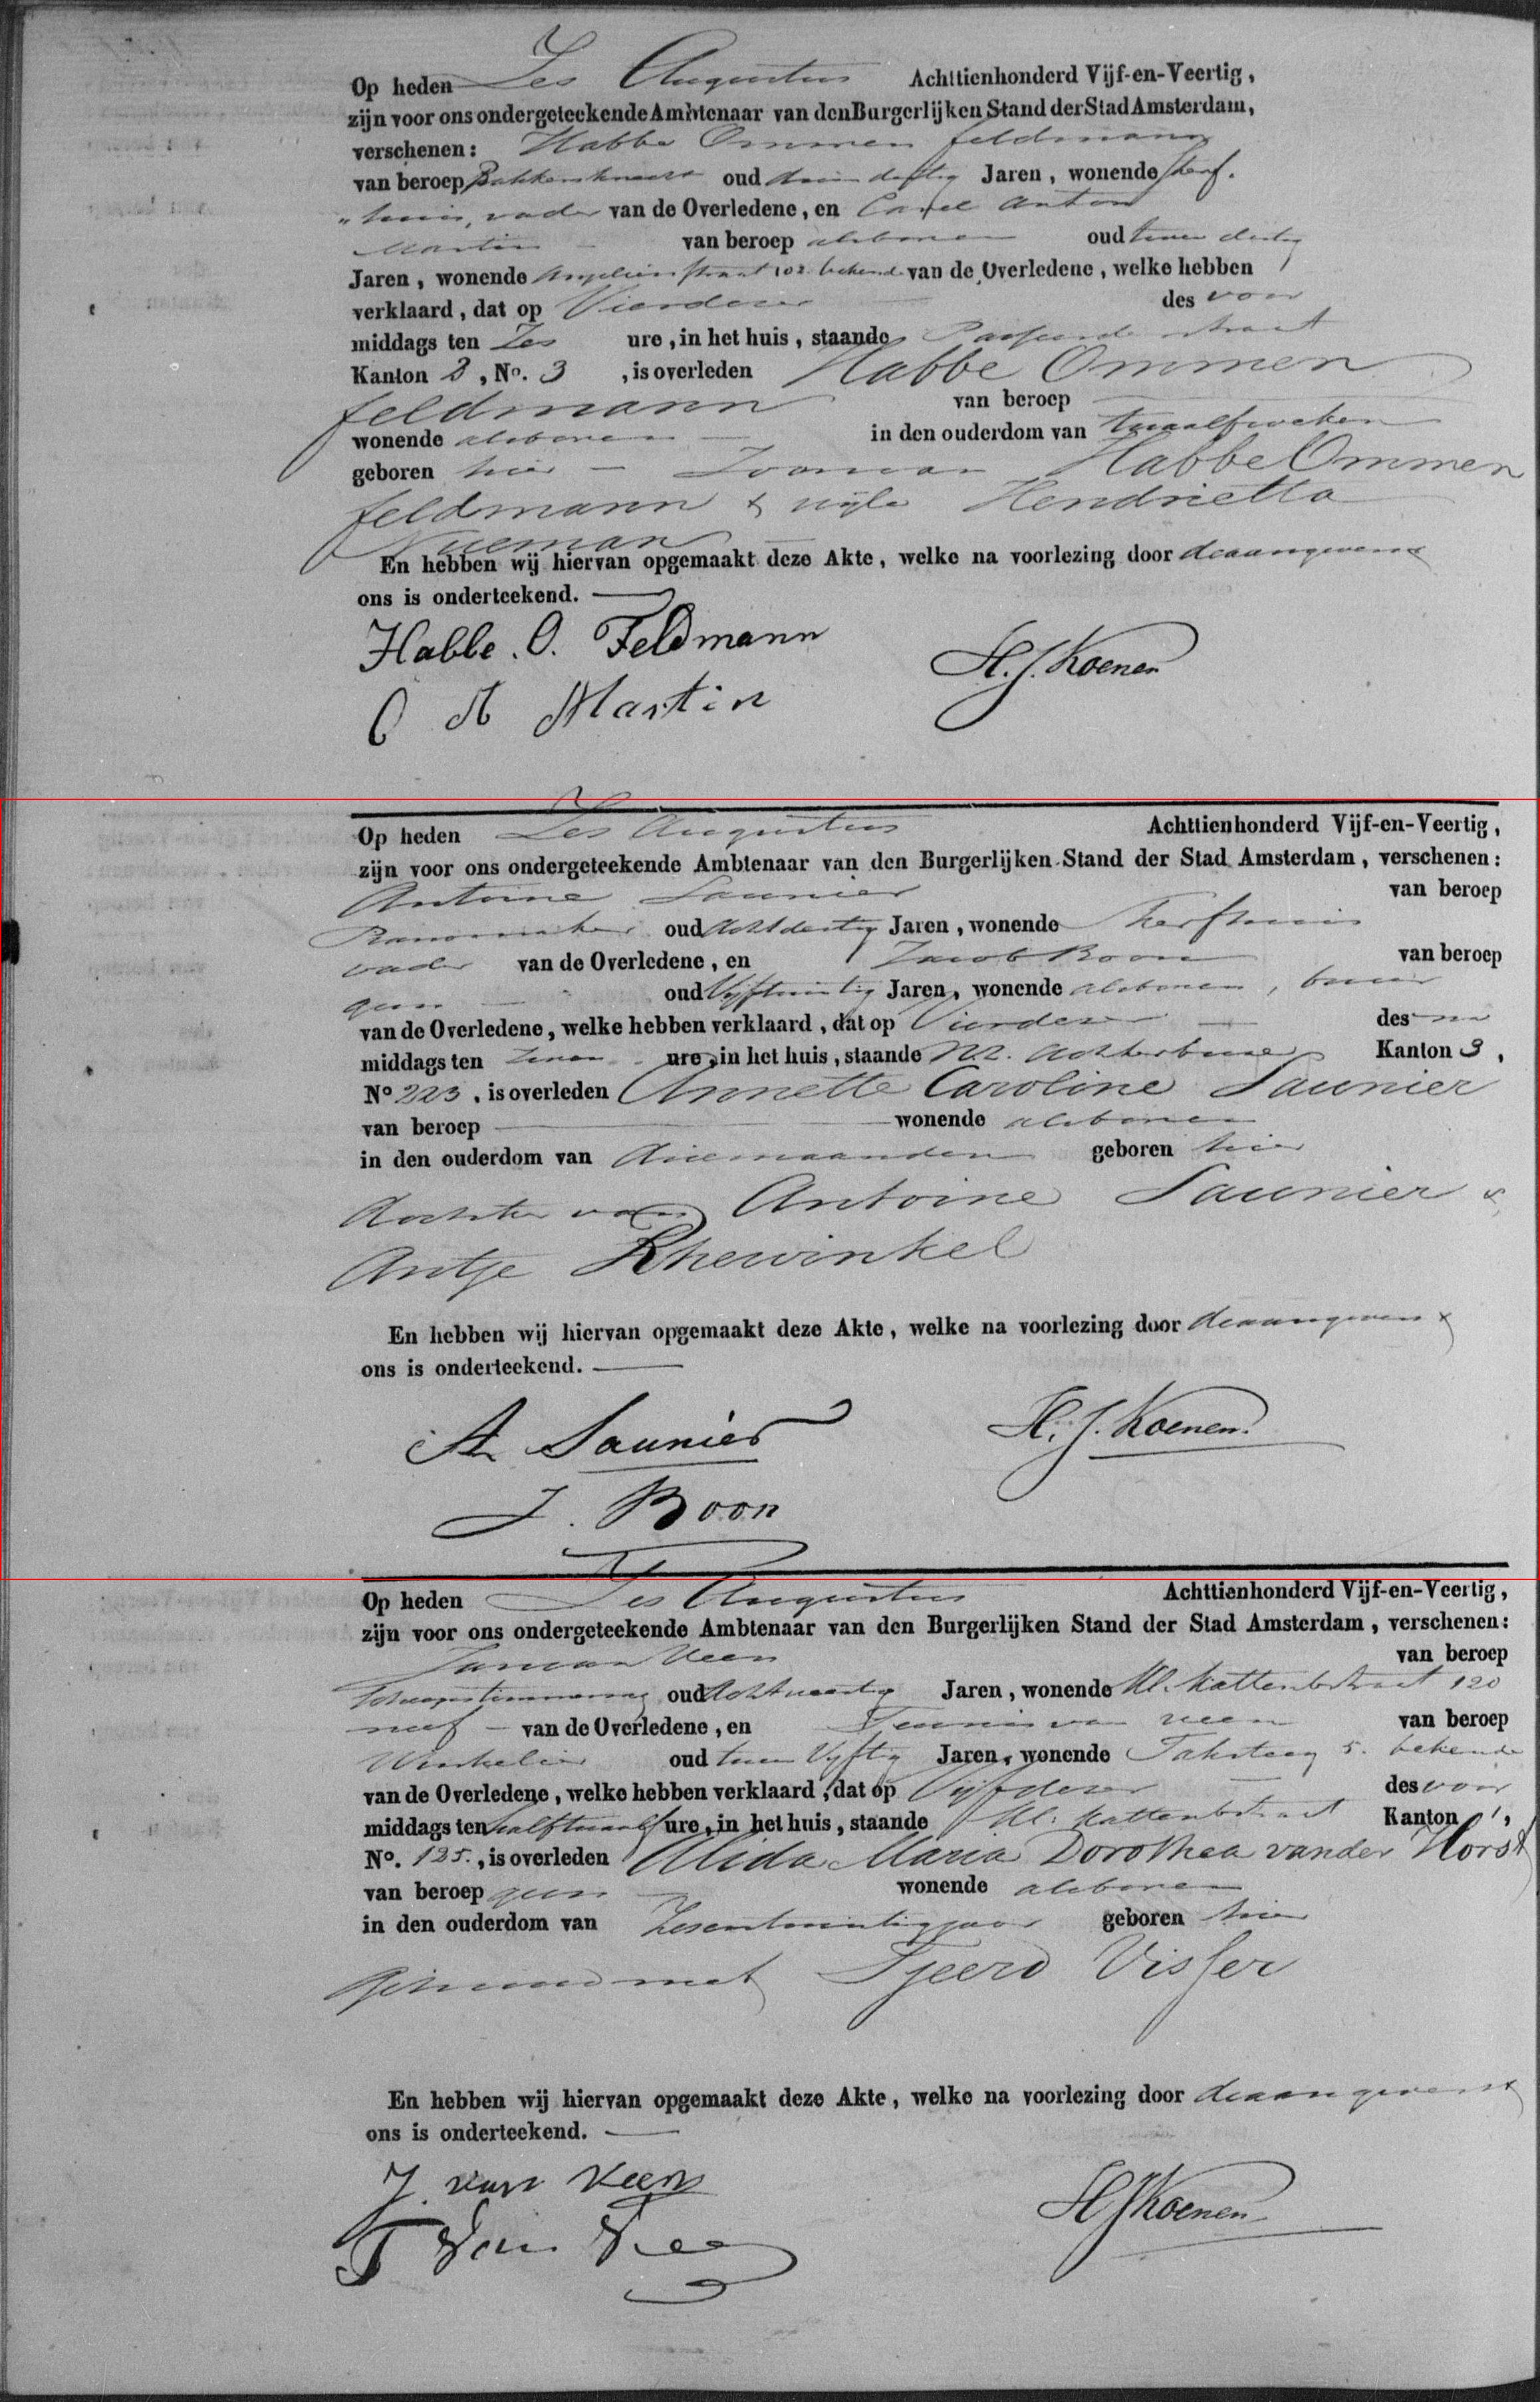 Op heden Zes Augustus Achttienhonderd Vijf-en-Veertig,
zijn voor ons ondergeteekende Ambtenaar van den Burgerlijken Stand der Stad Amsterdam,
verschenen: Habbe Ommen feldmann
van beroep Bakkersknecht oud drie dertig Jaren, wonende sterf-
"huis, vader van de Overledene, en Carel Anton
Martin van beroep alsboven oud twee dertig
Jaren, wonende Angelierstraat 102. bekende van de Overledene, welke hebben
verklaard, dat op Vierdezer des voor
middags ten Zes ure, in het huis, staande straat
Kanton 3, No. 3, is overleden Habbe Ommen
feldmann van beroep
wonende alsboven in den ouderdom van twaalfweken
geboren hier – Zoon van Habbe Ommen
feldmann & wijle Hendrietta
Nueman
En hebben wij hiervan opgemaakt deze Akte, welke na voorlezing door deaangevers &
ons is onderteekend.
Habbe. O. Feldmann
H. J. Koenen
C A Martin
Op heden Zes Augustus Achttienhonderd Vijf-en-Veertig,
zijn voor ons ondergeteekende Ambtenaar van den Burgerlijken Stand der Stad Amsterdam, verschenen:
Antoine Saunier van beroep
Pianomaker oud Achtdertig Jaren, wonende Sterfhuis
vader van de Overledene, en Jacob Boon van beroep
geen oud Vijftwintig Jaren, wonende alsboven, buur
van de Overledene, welke hebben verklaard, dat op Vierdezer des na
middags ten Zeven ure, in het huis, staande N.Z. Achterburgw Kanton 3,
No 223, is overleden Annette Caroline Saunier
van beroep wonende alsboven
in den ouderdom van driemaanden geboren hier
dochter van Antoine Saunier &
Antje Rhewinkel
En hebben wij hiervan opgemaakt deze Akte, welke na voorlezing door deaangevers &
ons is onderteekend.
A. Saunier
H. J. Koenen.
J. Boon
Op heden Zes Augustus Achttienhonderd Vijf-en-Veertig,
zijn voor ons ondergeteekende Ambtenaar van den Burgerlijken Stand der Stad Amsterdam, verschenen:
Jan van Veen van beroep
Scheepstimmerman oud Achtveertig Jaren, wonende Kl. Kattenbstraat 120
neef – van de Overledene, en Teunis van Veen van beroep
Winkelier oud twee Vyftig Jaren, wonende Taksteeg 5. bekende
van de Overledene, welke hebben verklaard, dat op Vijfdezer des voor
middags ten halftwaalf ure, in het huis, staande Kl. Kattenbstraat Kanton 1,
No. 125., is overleden Alida Maria Dorothea vander Horst
van beroep geen wonende alsboven
in den ouderdom van Zesentwintigjaar geboren hier
Gehuwd met Tjeerd Visser
En hebben wij hiervan opgemaakt deze Akte, welke na voorlezing door deaangevers &
ons is onderteekend.
J. van Veen
H J Koenen
T van Veen